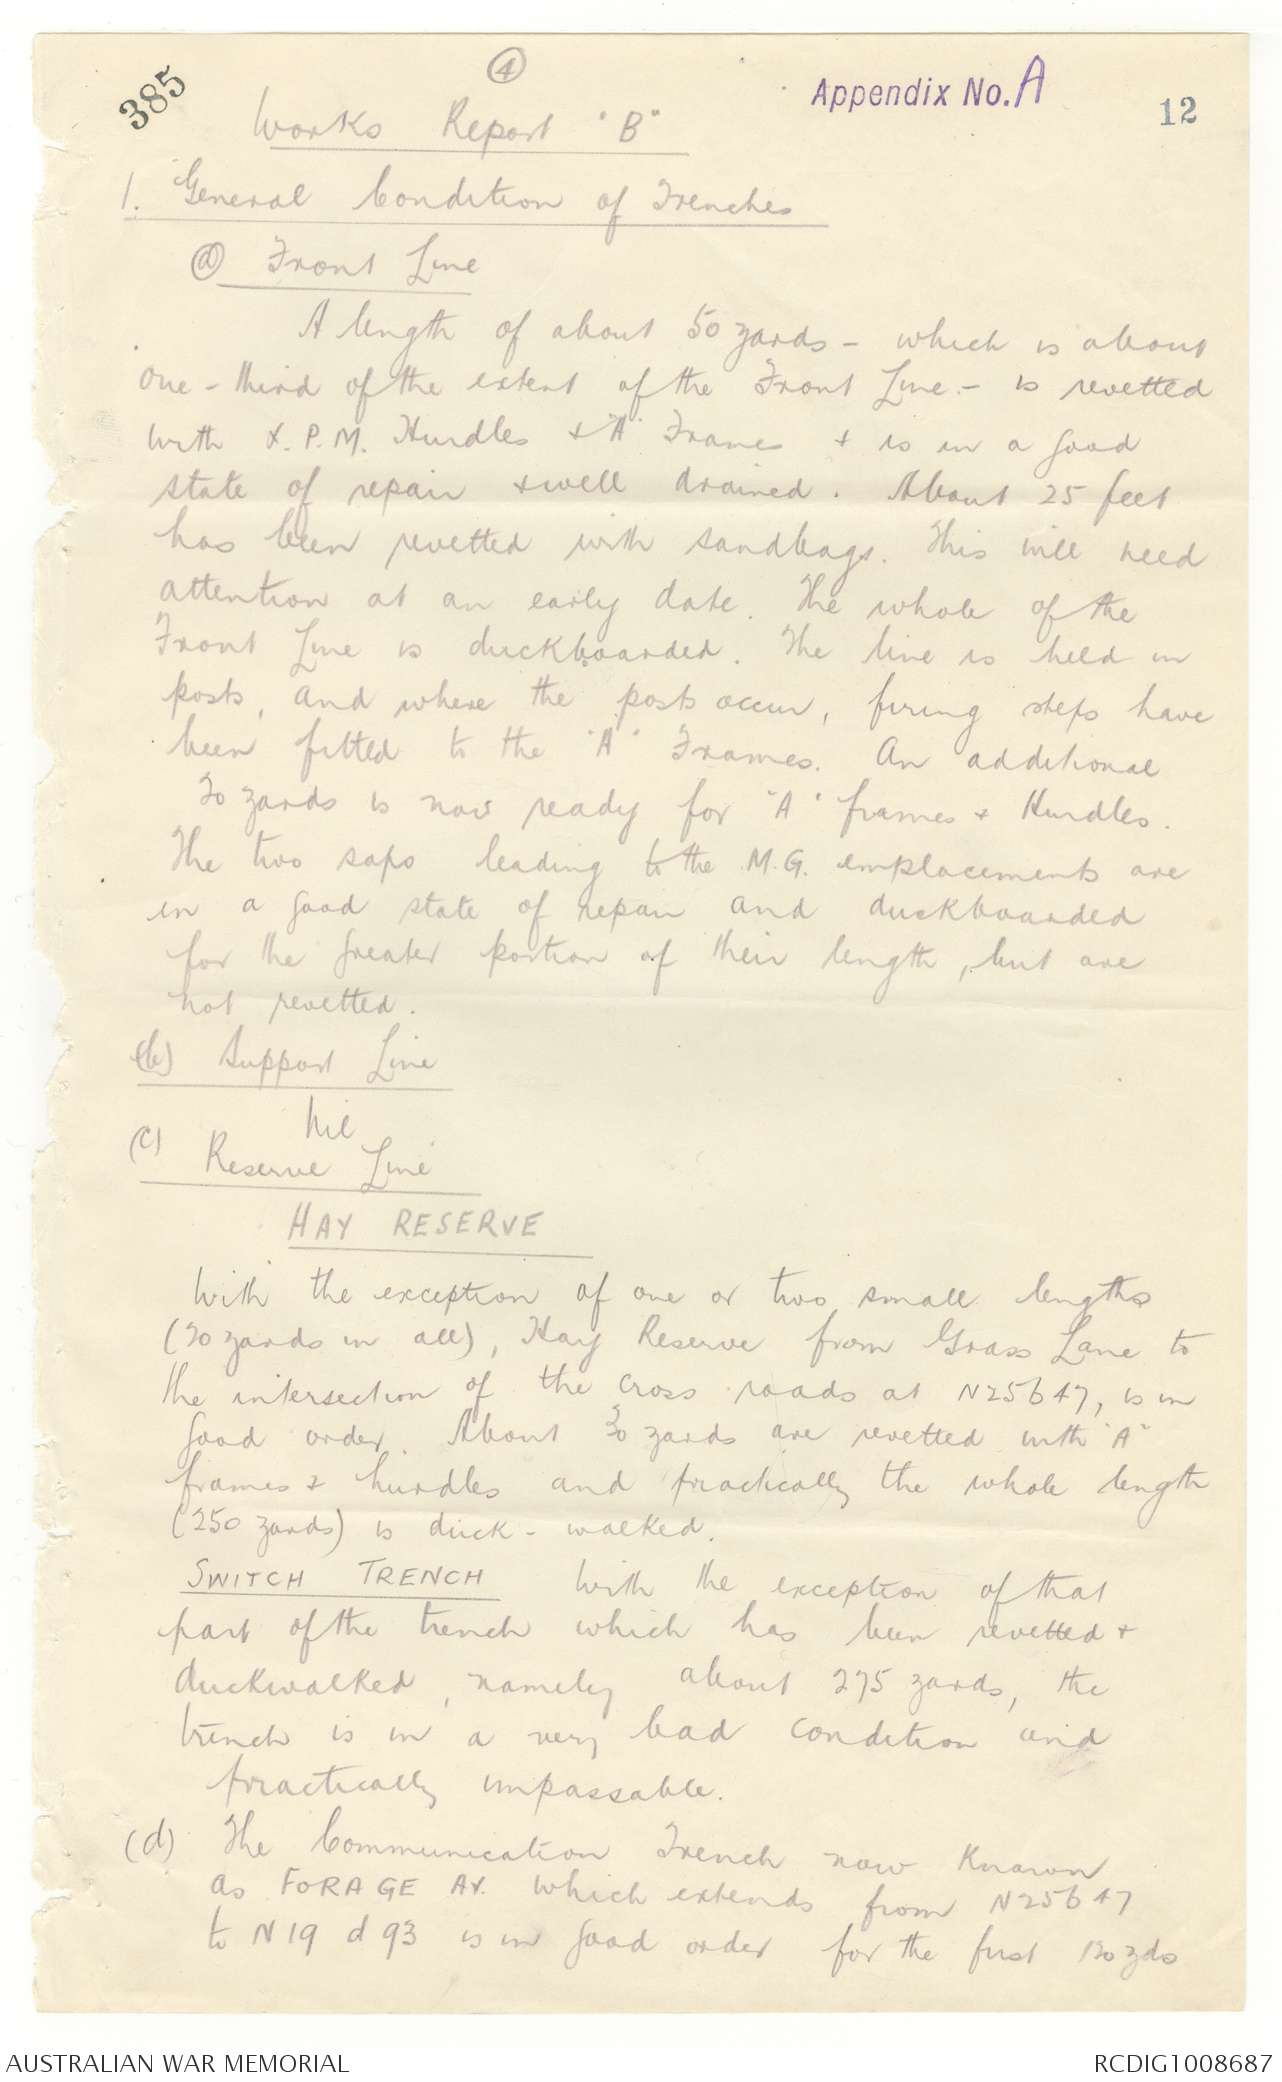 385
④
Appendix No. A
12
Works Report "B"
1. General Condition of Trenches
(a) Front Line
A length of about 50 yards - which is about
one-third of the extent of the Front Line - is revetted
with X.P.M. Hurdles & "A" Frames & is in a good
state of repair & well drained. About 25 feet
has been revetted with sandbags. This will need
attention at an early date. The whole of the
Front Line is duckboarded. The line is held in
posts, and where the posts occur, firing steps have
been fitted to the "A" Frames. An additional
20 yards is now ready for "A" frames & Hurdles.
The two saps leading to the M.G. emplacements are
in a good state of repair and duckboarded
for the greater portion of their length, but are
not revetted.
(b) Support Line
Nil
(c) Reserve Line
HAY RESERVE
With the exception of one or two small lengths
(20 yards in all), Hay Reserve from Grass Lane to
the intersection of the cross roads at N25b47, is in
good order. About 30 yards are revetted with "A"
frames & hurdles and practically the whole length
(250 yards) is duck-walked.
SWITCH TRENCH With the exception of that
part of the trench which has been revetted &
duckwalked, namely about 275 yards, the
trench is in a very bad condition and
practically impassable.
(d) The Communication Trench now known
as FORAGE AV. which extends from N25b47
to N19 d 93 is in good order for the first 120 yds
AUSTRALIAN WAR MEMORIAL
RCDIG1008687